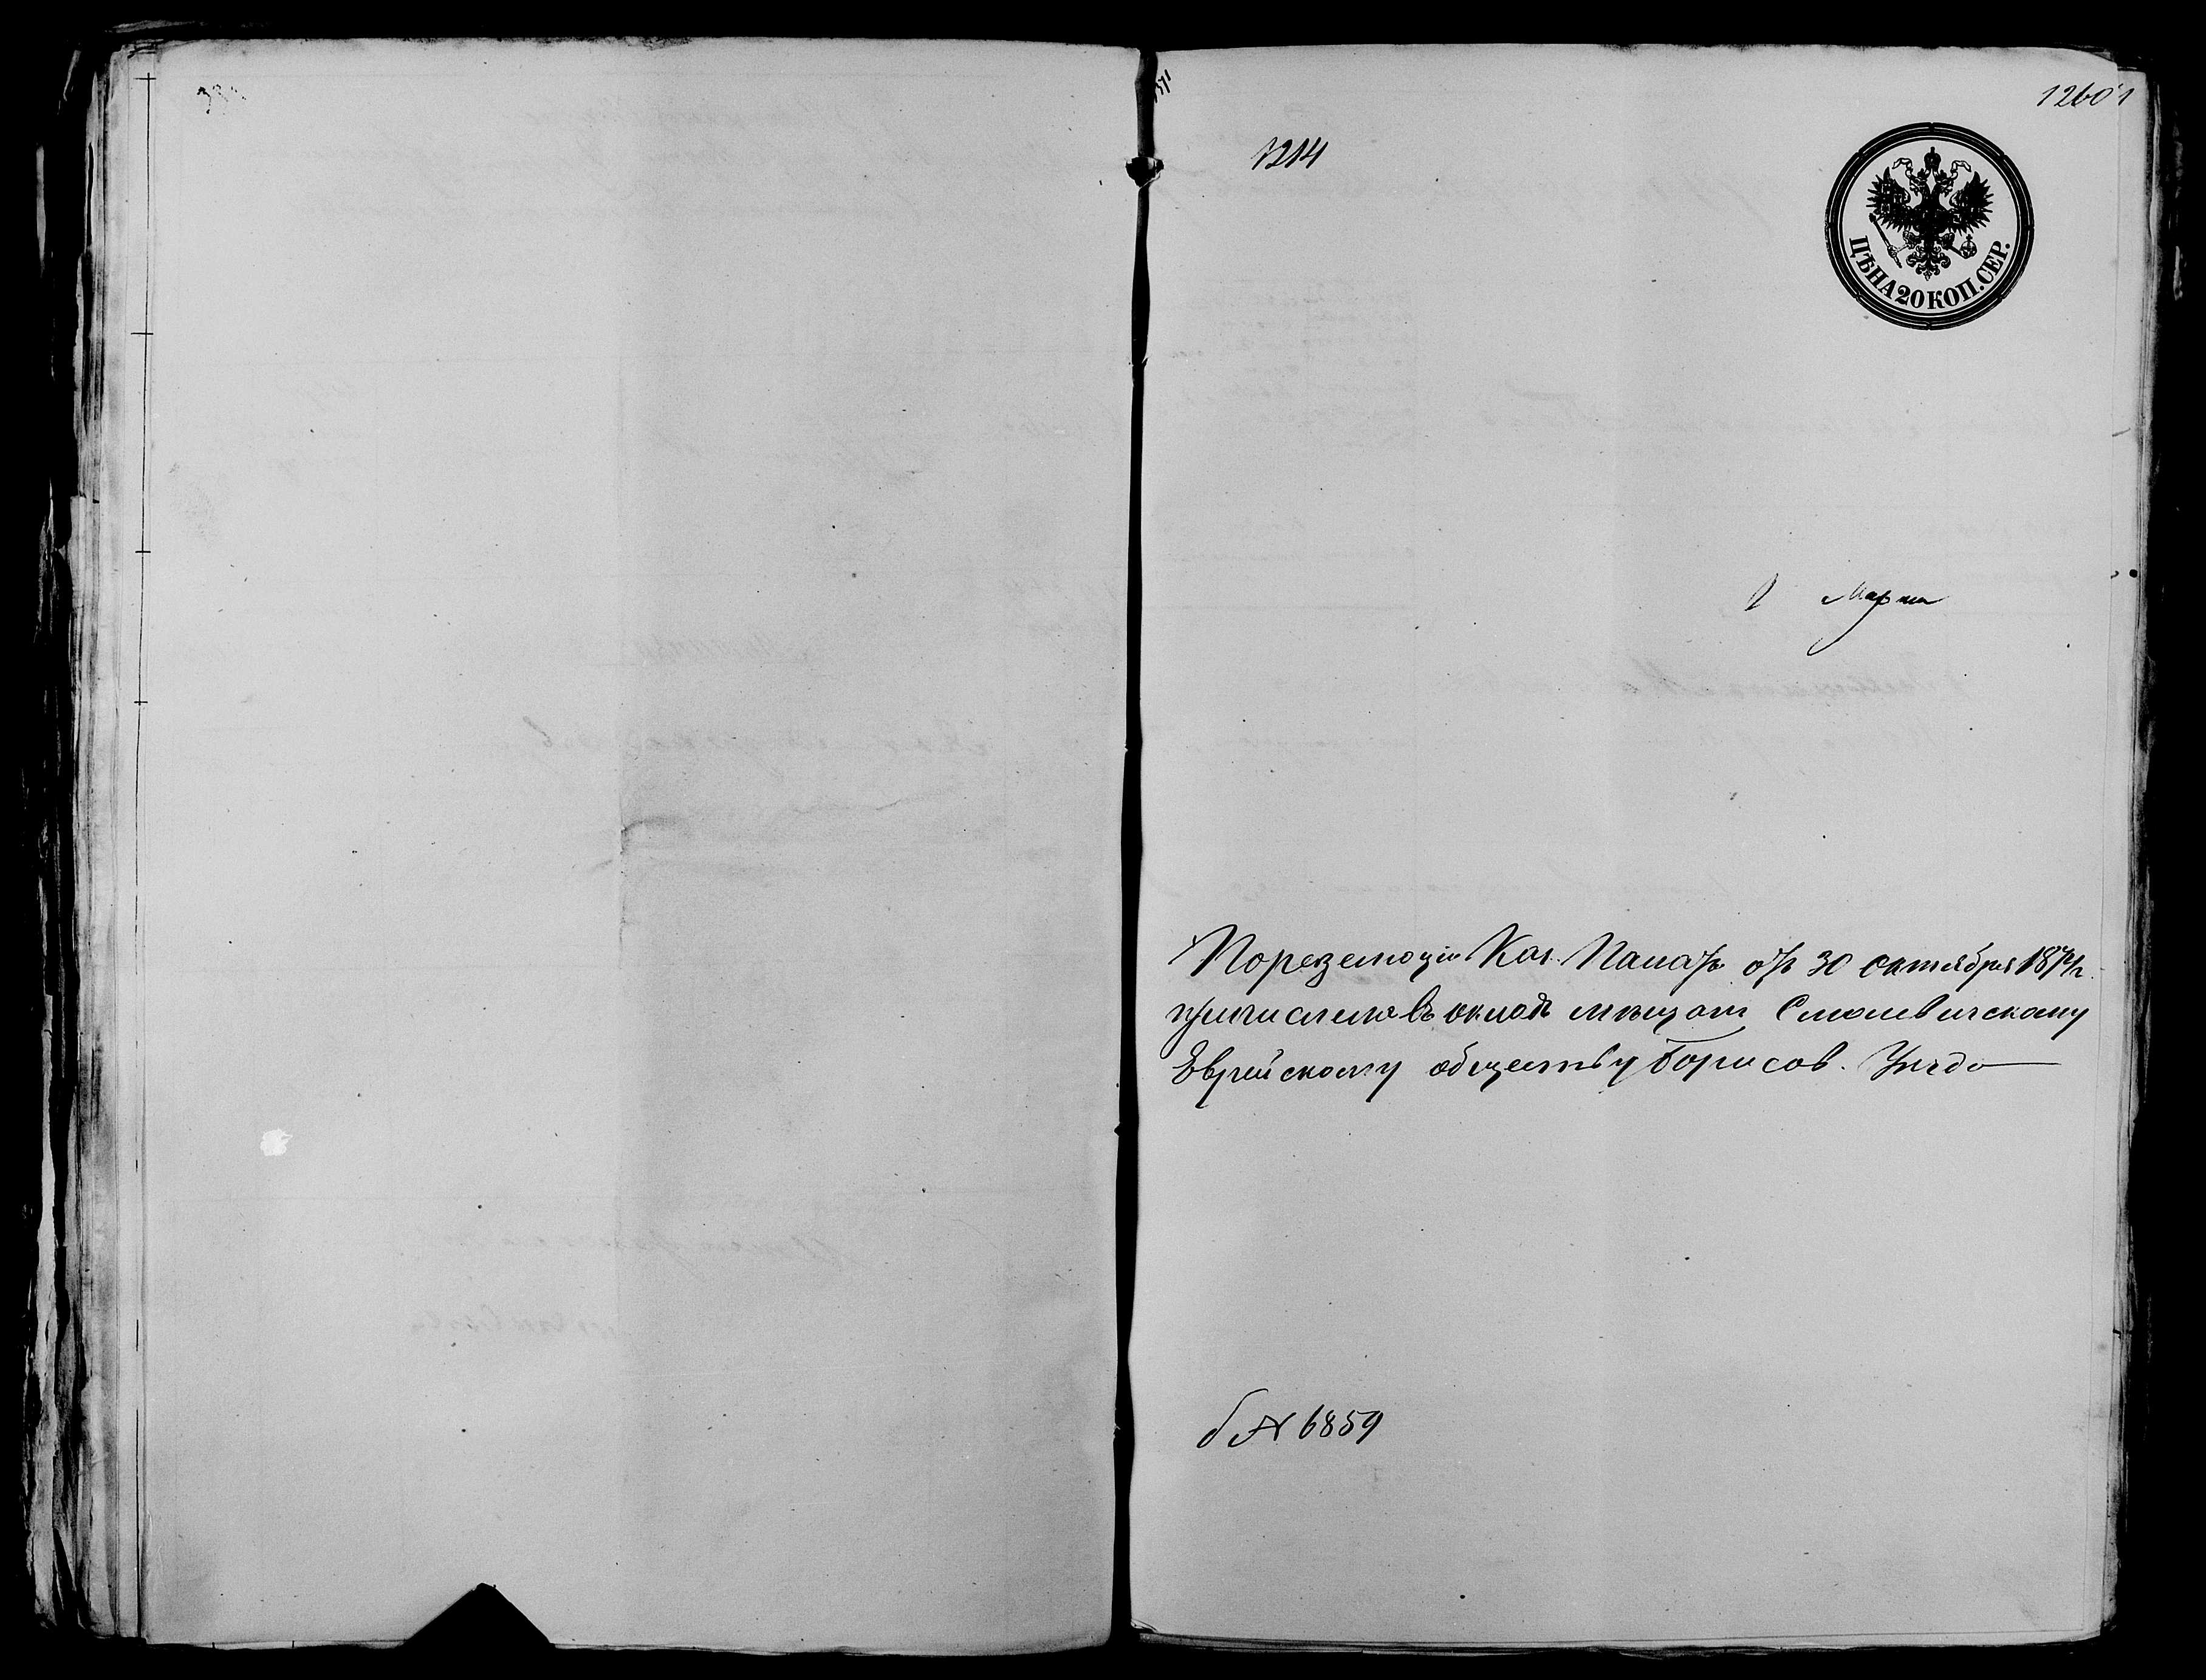 1214
12601
ЦѢНА 20 КОП. СЕР.
Марта
По резолюціи Каз. Палаты отъ 30 октября 1874 г.
причислено въ окладъ мѣщан Смолевичскому
Еврейскому обществу Борисов. Уѣзда
№ 6859